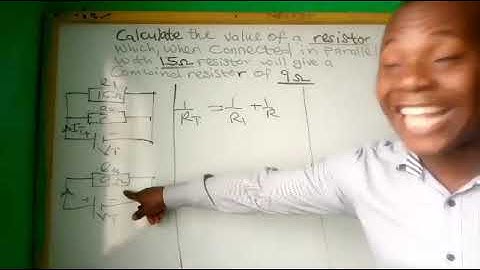 Calculate the value of a resistor
which, when connected in parallel
with 15Ω resistor will give a
combined resistor of 9Ω
R1
15Ω
1/RT = 1/R1 + 1/R